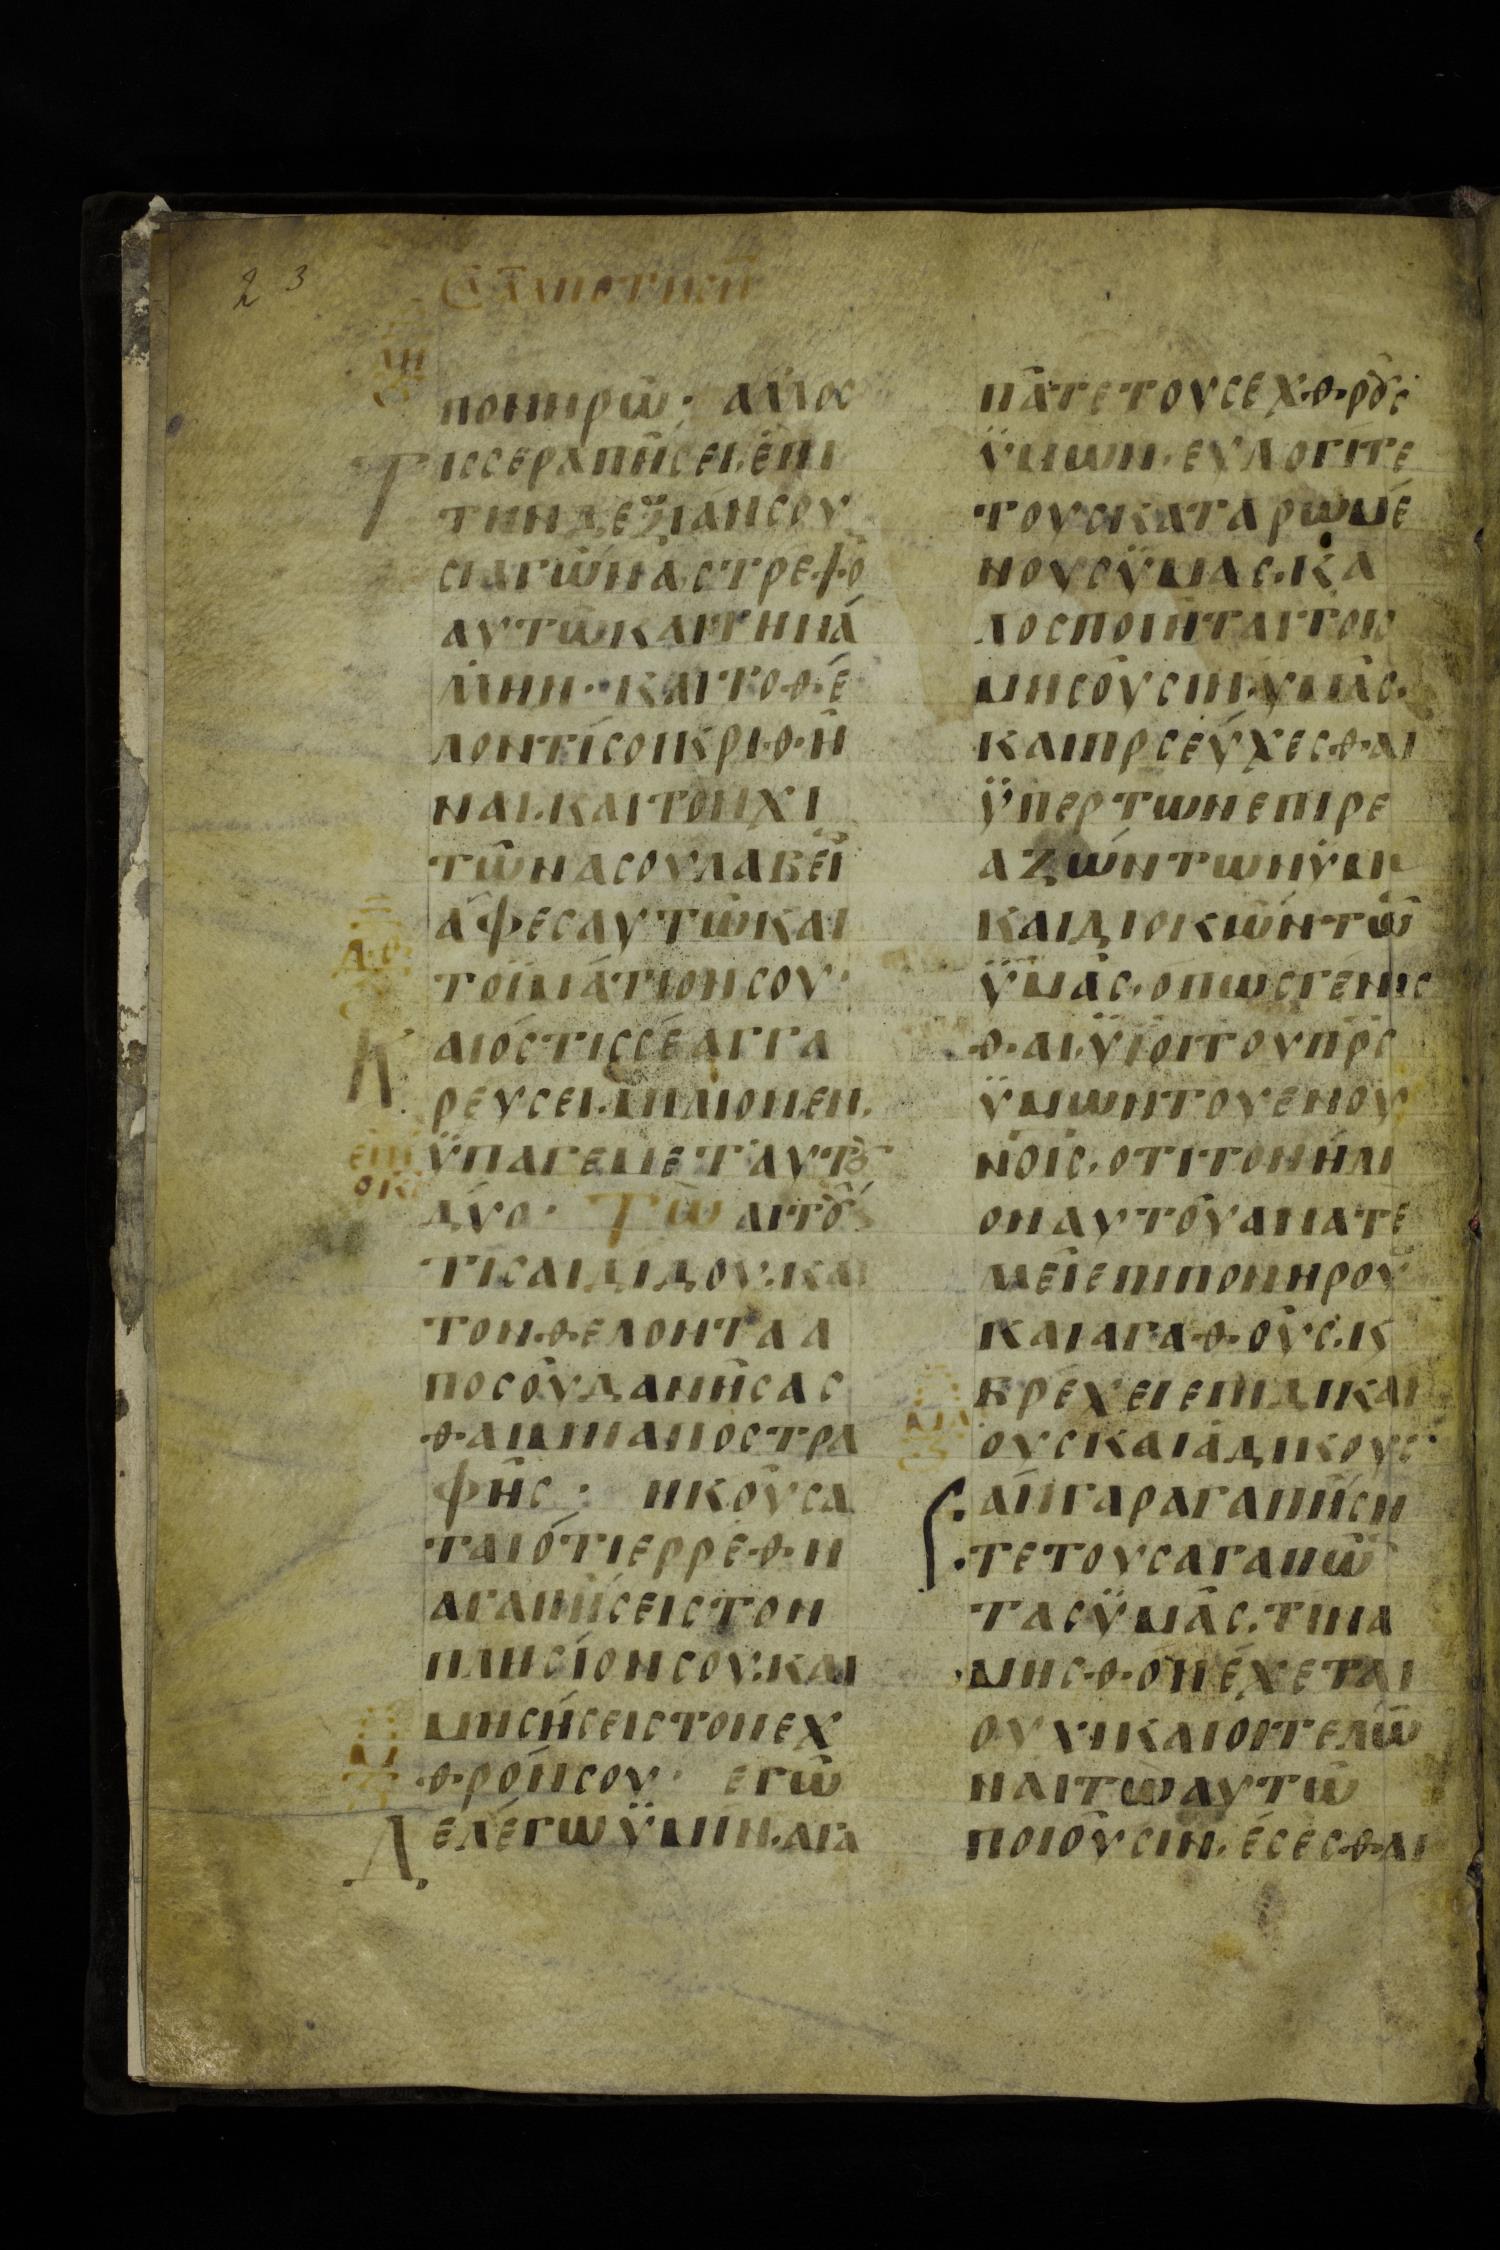 23
ΠΟΝΗΡῶ· ΑΛΛΟC
ΤΙCCΕΡΑΠΗCΕΙ.ΕΠΙ
ΤΗΝΔΕΞΙΑΝCΟΥ
CΙΑΓΩΝΑCΤΡΕΨΟ
ΑΥΤΩΚΑΙΤΗΝΑ
ΛΛΗΝ· ΚΑΙΤΟΘΕ
ΛΟΝΤΙCΟΙΚΡΙΘΗ
ΝΑΙ.ΚΑΙΤΟΝΧΙ
ΤΩΝΑCΟΥΛΑΒΕΙ
ΑΦΕCΑΥΤΩΚΑΙ
ΤΟΪΜΑΤΙΟΝCΟΥ·
ΚΑΙΟCΤΙCCΕΑΓΓΑ
ΡΕΥCΕΙ.ΜΙΛΙΟΝΕΝ.
ΫΠΑΓΕΜΕΤΑΥΤΟΥ
ΔΥΟ· Τῶ ΑΙΤΟΥ
ΤΙCΑΙΔΙΔΟΥ.ΚΑΙ
ΤΟΝΘΕΛΟΝΤΑΑ
ΠΟCΟΥΔΑΝΗCΑC
ΘΑΙΜΗΑΠΟCΤΡΑ
ΦΗC: ΗΚΟΥCΑ
ΤΑΙΟΤΙΕΡΡΕΘΗ
ΑΓΑΠΗCΕΙCΤΟΝ
ΠΛΗCΙΟΝCΟΥ.ΚΑΙ
ΜΗCΗCΕΙCΤΟΝΕΧ
ΘΡΟΝCΟΥ· ΕΓῶ
ΔΕΛΕΓΩΫΜΙΝ.ΑΓΑ
ΠΑΤΕΤΟΥCΕΧΘΡΟΥC
ΫΜΩΝ.ΕΥΛΟΓΙΤΕ
ΤΟΥCΚΑΤΑΡΩΜΕ
ΝΟΥCΫΜΑC.ΚΑ
ΛΟCΠΟΙΗΤΑΙΤΟΙC
ΜΗCΟΥCΙΝ.ΥΜΑC.
ΚΑΙΠΡCΕΥΧΕCΘΑΙ
ΫΠΕΡΤΩΝΕΠΙΡΕ
ΑΖΩΝΤΩΝΫΜ
ΚΑΙΔΙΟΚΩΝΤΩ
ΫΜΑC.ΟΠΩCΓΕΝΗC
ΘΑΙ.ΫΙΟΙΤΟΥΠΡC
ΫΜΩΝΤΟΥΕΝΟΥ
ΝΟΙC.ΟΤΙΤΟΝΗΛΙ
ΟΝΑΥΤΟΥΑΝΑΤΕ
ΛΕΙΕΠΙΠΟΝΗΡΟΥ
ΚΑΙΑΓΑΘΟΥC.Κ
ΒΡΕΧΕΙΕΠΙΔΙΚΑΙ
ΟΥCΚΑΙΑΔΙΚΟΥC·
ΕΑΝΓΑΡΑΓΑΠΗCΗ
ΤΕΤΟΥCΑΓΑΠΩ
ΤΑCΫΜΑC.ΤΙΝΑ
ΜΗCΘΟΝΕΧΕΤΑΙ
ΟΥΧΙΚΑΙΟΙΤΕΛΩ
ΝΑΙΤΩΑΥΤΩ
ΠΟΙΟΥCΙΝ.ΕCΕCΘΑΙ